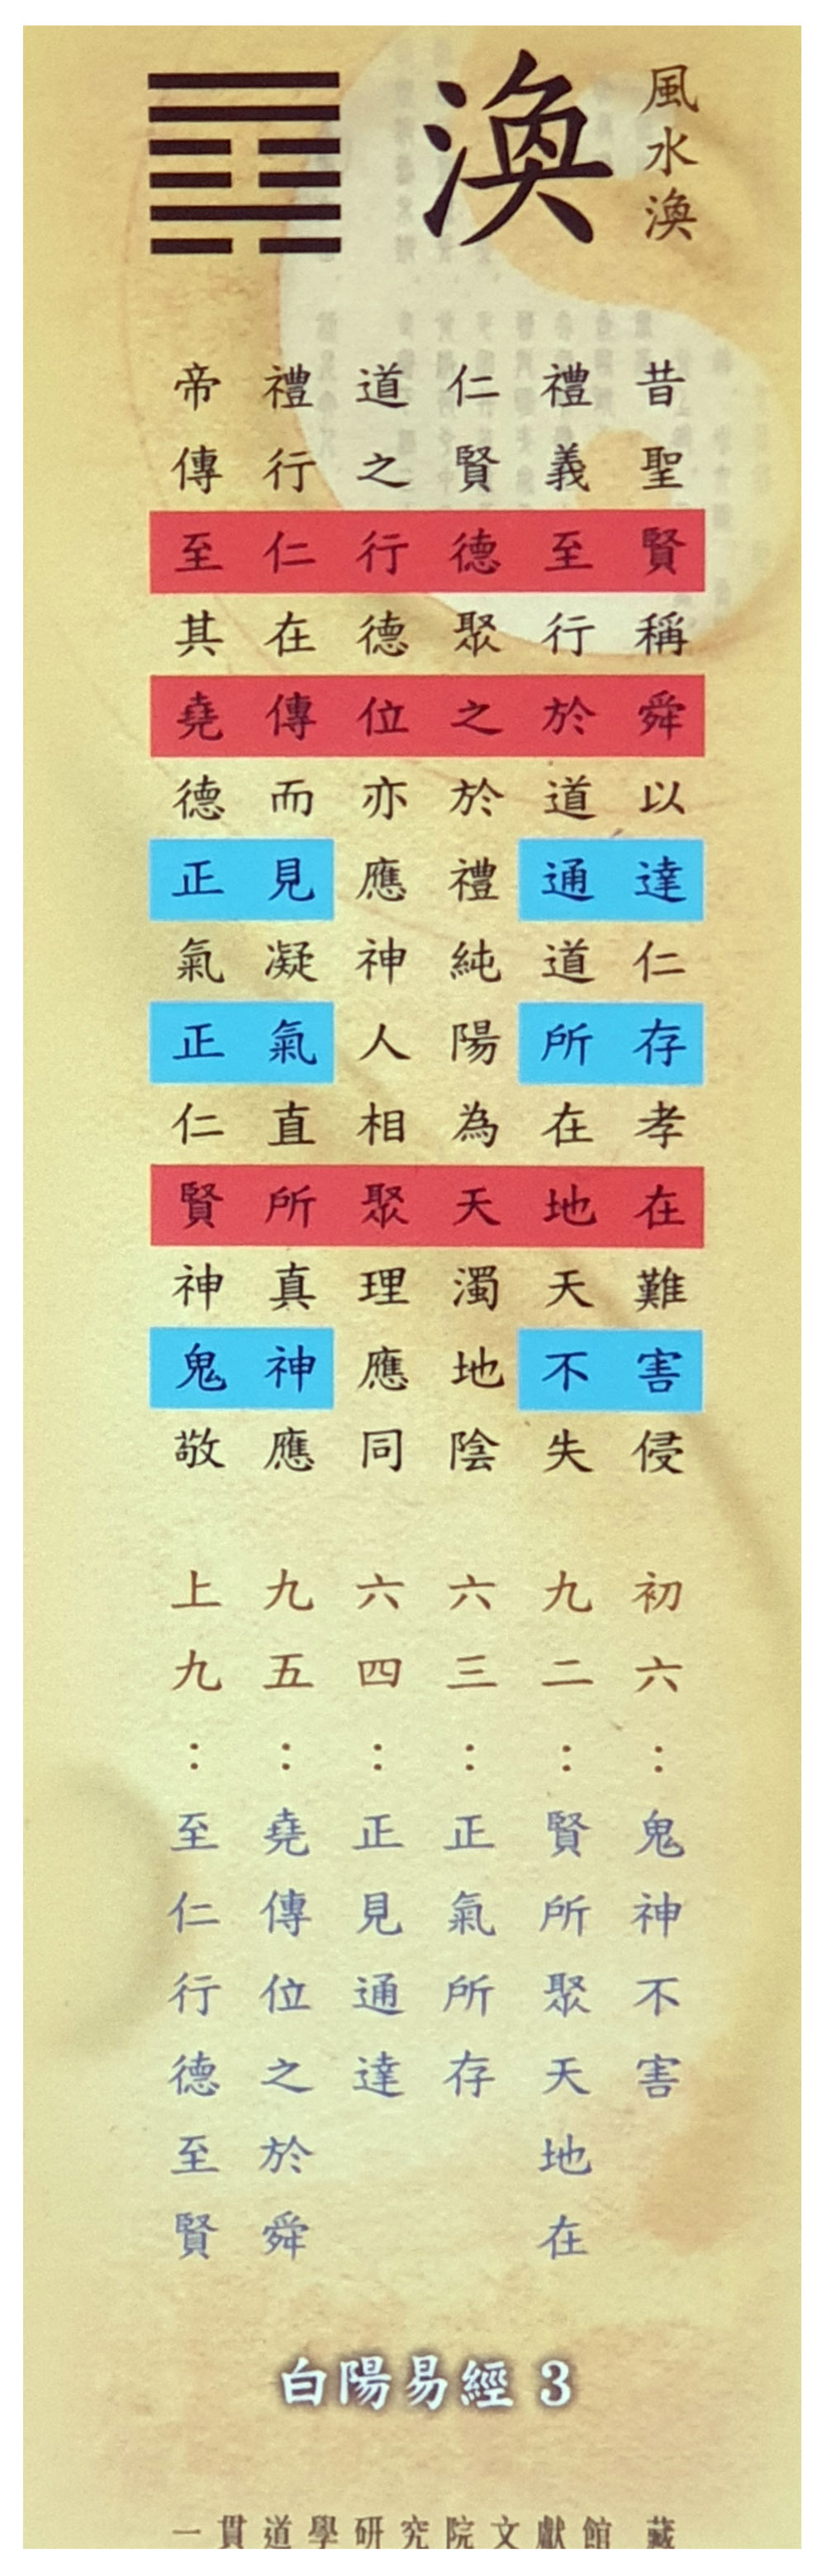 風水渙
渙
昔聖賢稱舜以達仁存孝在難害侵
禮義至行於道通道所在地天不失
仁賢德聚之於禮純陽為天濁地陰
道之行德位亦應神人相聚理應同
禮行仁在傳而見凝氣直所真神應
帝傳至其堯德正氣正仁賢神鬼敬
初六：鬼神不害
九二：賢所聚天地在
六三：正氣所存
六四：正見通達
九五：堯傳位之於舜
上九：至仁行德至賢
白陽易經 3
一貫道學研究院文獻館 藏